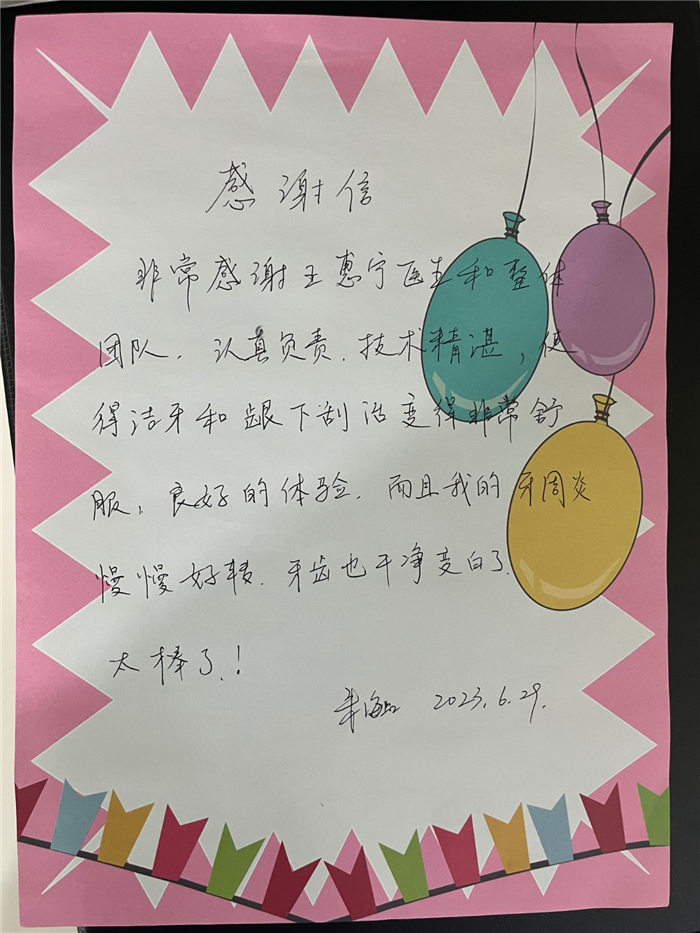 感谢信
非常感谢王惠宁医生和整体
团队，认真负责，技术精湛，使
得洁牙和龈下刮治变得非常舒
服，良好的体验，而且我的牙周炎
慢慢好转，牙齿也干净变白了，
太棒了！
2023.6.29.